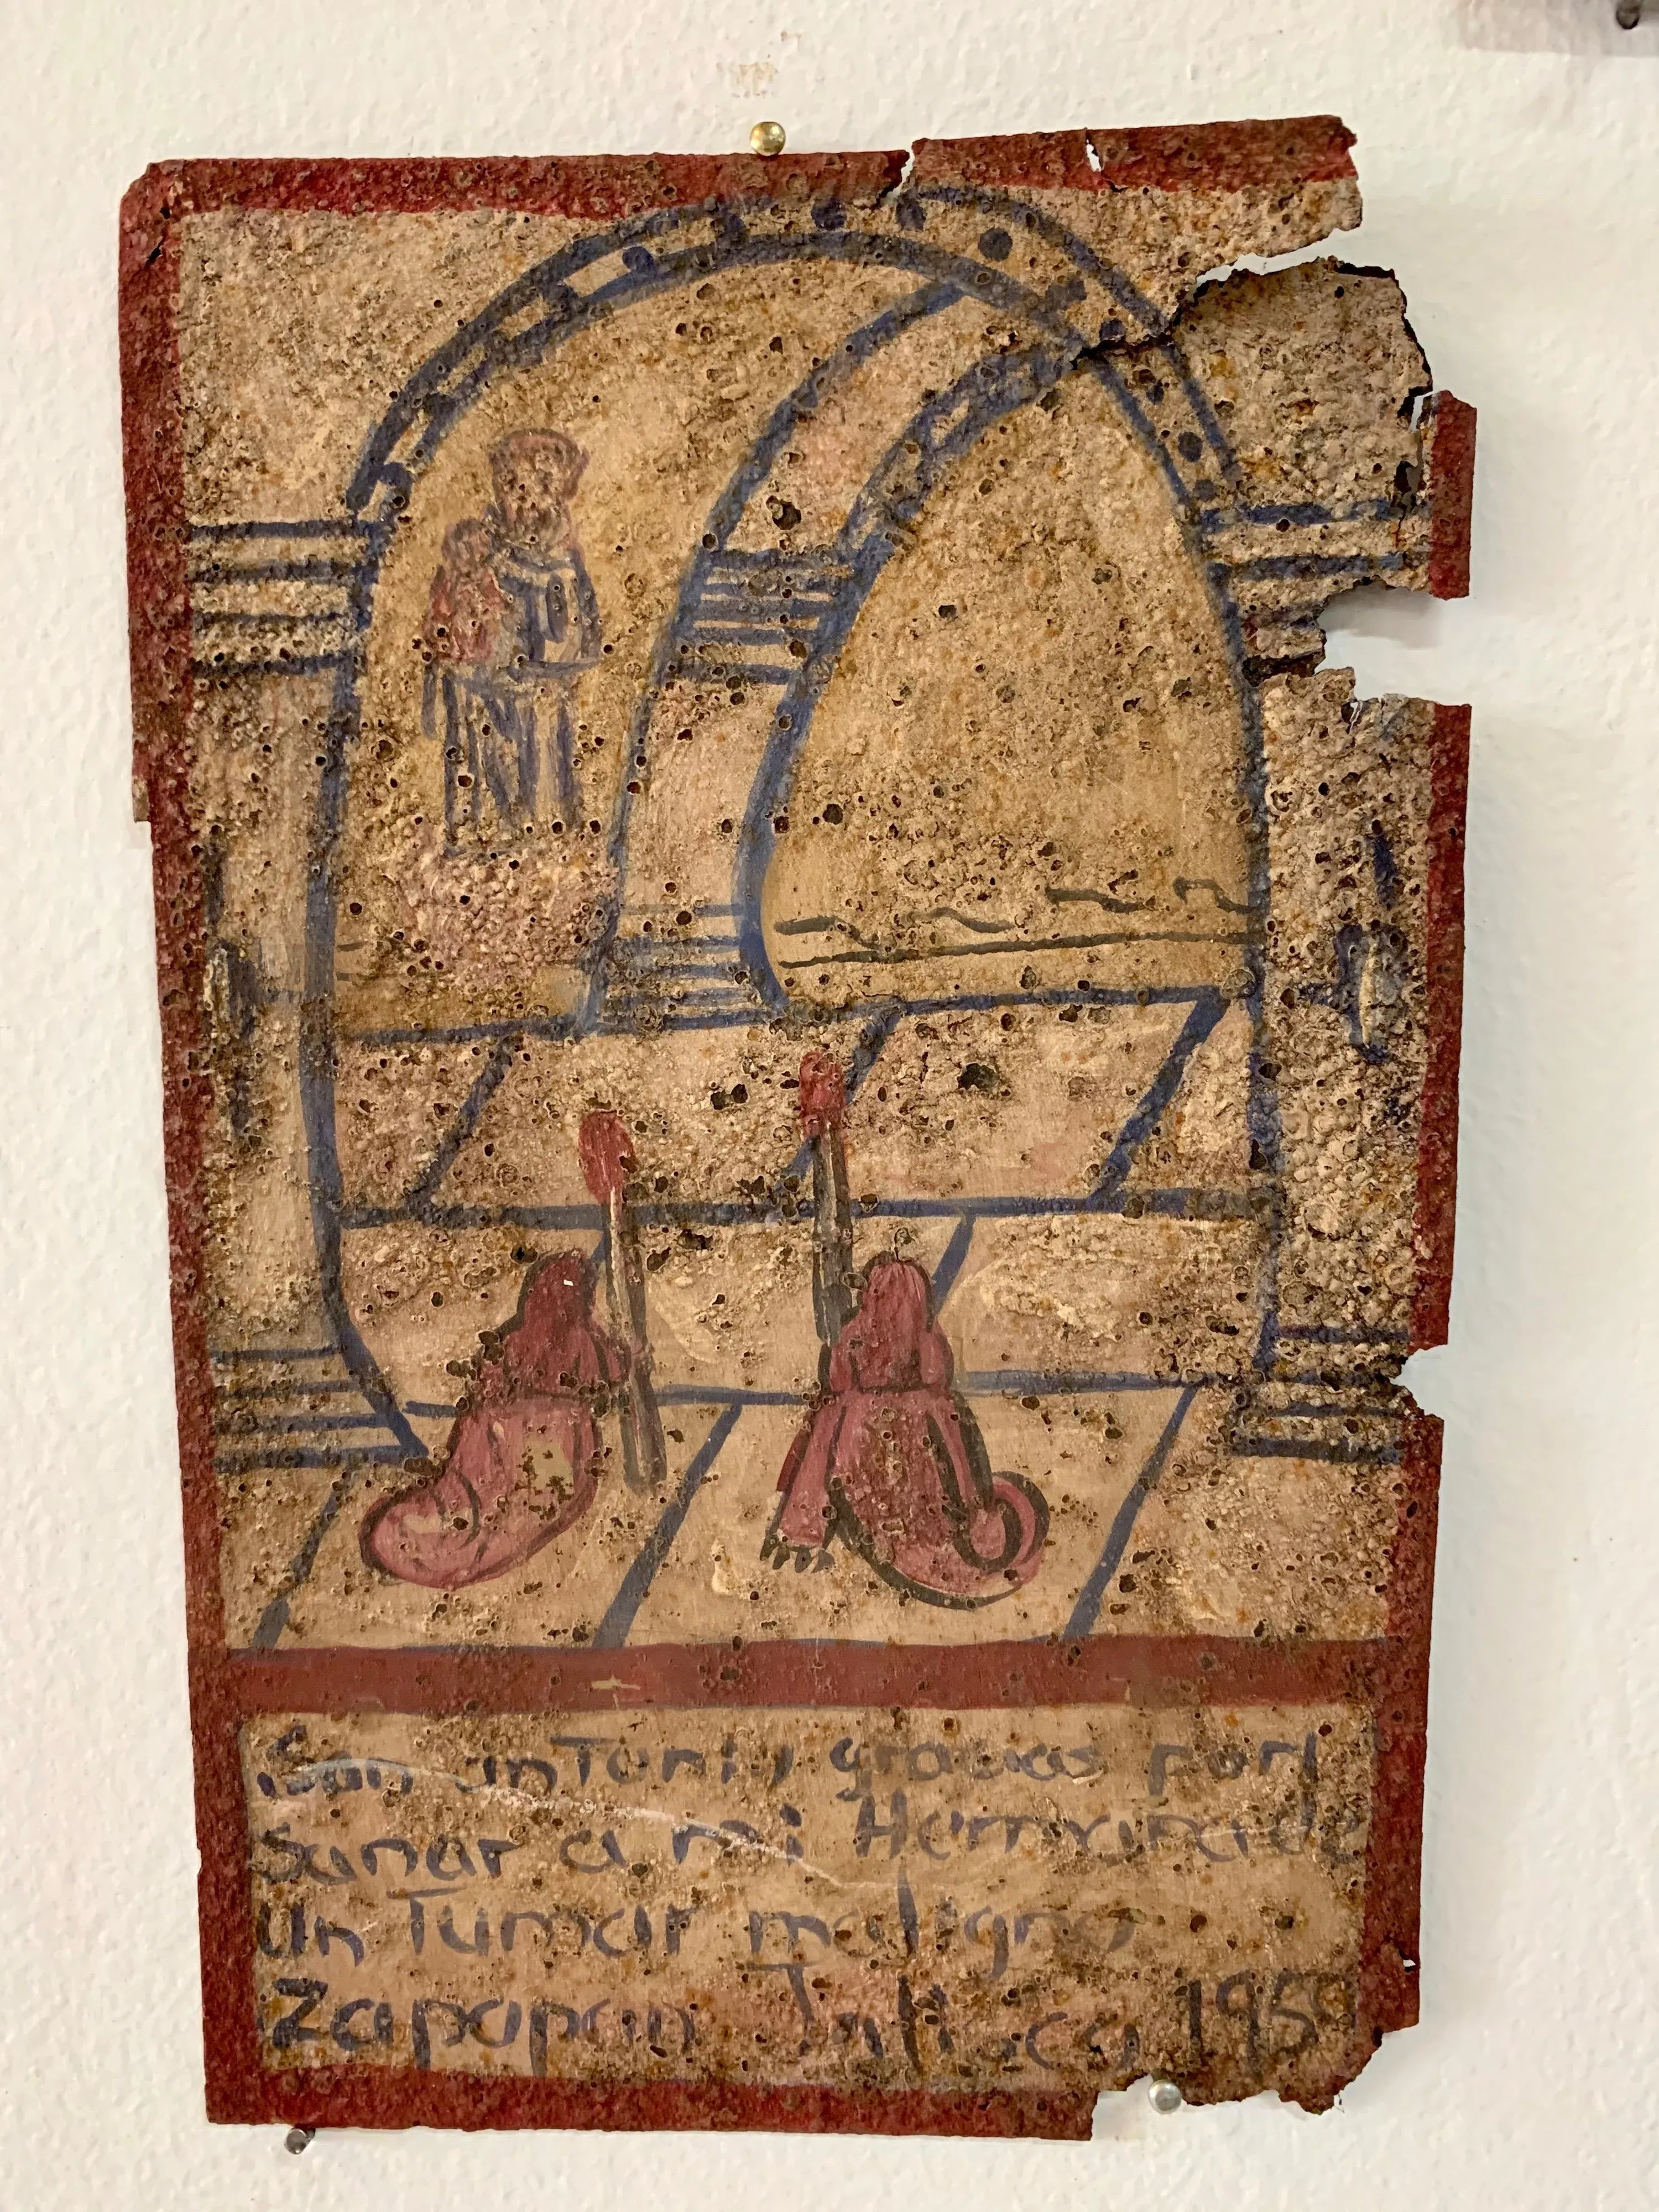 San antonio gracias por
Sanar a mi Hermana de
Un Tumar maligno
Zapopan Jallsco 1959